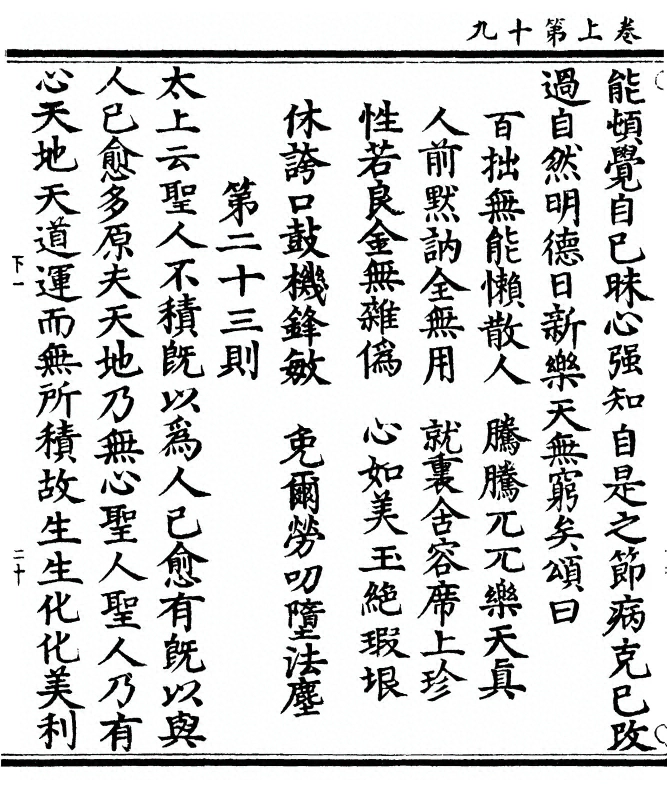 卷上第十九
能頓覺自已昧心强知自是之節病克已改
過自然明德日新樂天無窮矣頌曰
百拙無能懶散人　騰騰兀兀樂天眞
人前默訥全無用　就裏含容席上珍
性若良金無雜僞　心如美玉絶瑕垠
休誇口鼓機鋒敏　免爾勞叨墮法塵
第二十三則
太上云聖人不積旣以爲人已愈有旣以與
人已愈多原夫天地乃無心聖人聖人乃有
心天地天道運而無所積故生生化化美利
下一
二十